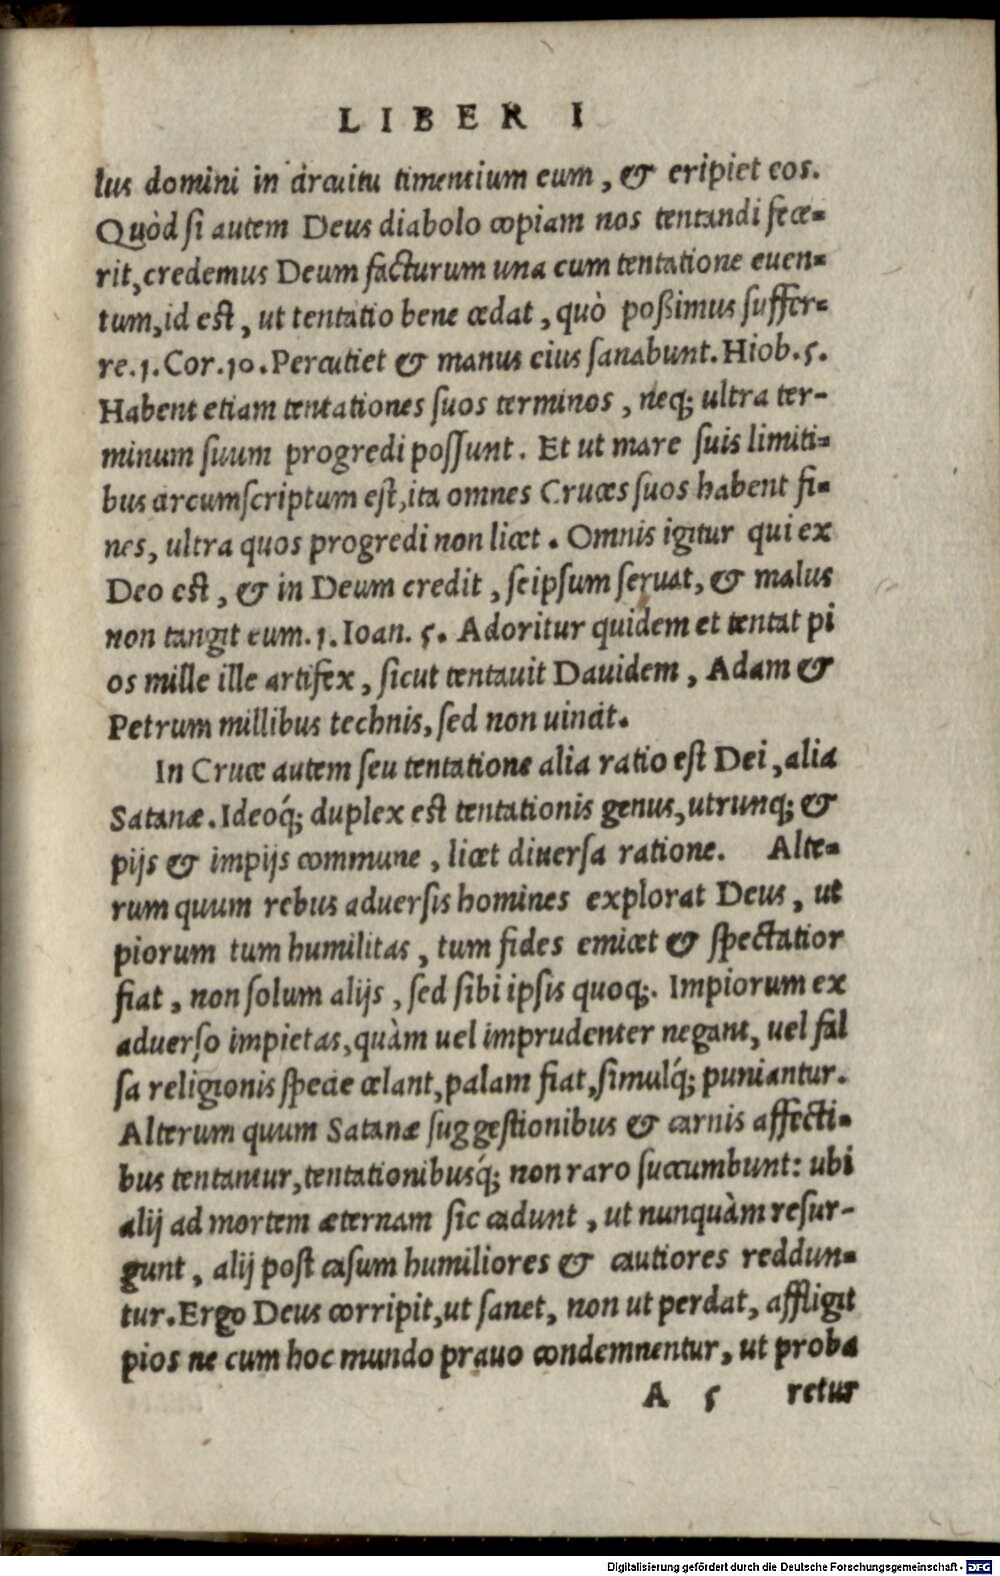 LIBER I
lus domini in circuitu timentium eum, & eripiet eos.
Quòd si autem Deus diabolo copiam nos tentandi fece=
rit, credemus Deum facturum una cum tentatione euen=
tum, id est, ut tentatio bene cedat, quò poßimus suffer=
re. 1. Cor. 10. Percutiet & manus eius sanabunt. Hiob. 5.
Habent etiam tentationes suos terminos, neq; ultra ter-
minum suum progredi possunt. Et ut mare suis limiti=
bus circumscriptum est, ita omnes Cruces suos habent fi=
nes, ultra quos progredi non licet. Omnis igitur qui ex
Deo est, & in Deum credit, seipsum seruat, & malus
non tangit eum. 1. Ioan. 5. Adoritur quidem et tentat pi
os mille ille artifex, sicut tentauit Dauidem, Adam &
Petrum millibus technis, sed non uincit.
In Cruce autem seu tentatione alia ratio est Dei, alia
Satanæ. Ideoq́; duplex est tentationis genus, utrunq; &
pijs & impijs commune, licet diuersa ratione. Alte=
rum quum rebus aduersis homines explorat Deus, ut
piorum tum humilitas, tum fides emicet & spectatior
fiat, non solum alijs, sed sibi ipsis quoq;. Impiorum ex
aduerso impietas, quàm uel imprudenter negant, uel fal
sa religionis specie celant, palam fiat, simulq́; puniantur.
Alterum quum Satanæ suggestionibus & carnis affecti=
bus tentantur, tentationibusq́; non raro succumbunt: ubi
alij ad mortem æternam sic cadunt, ut nunquàm resur-
gunt, alij post casum humiliores & cautiores reddun=
tur. Ergo Deus corripit, ut sanet, non ut perdat, affligit
pios ne cum hoc mundo prauo condemnentur, ut proba
A 5 retur
Digitalisierung gefördert durch die Deutsche Forschungsgemeinschaft - DFG